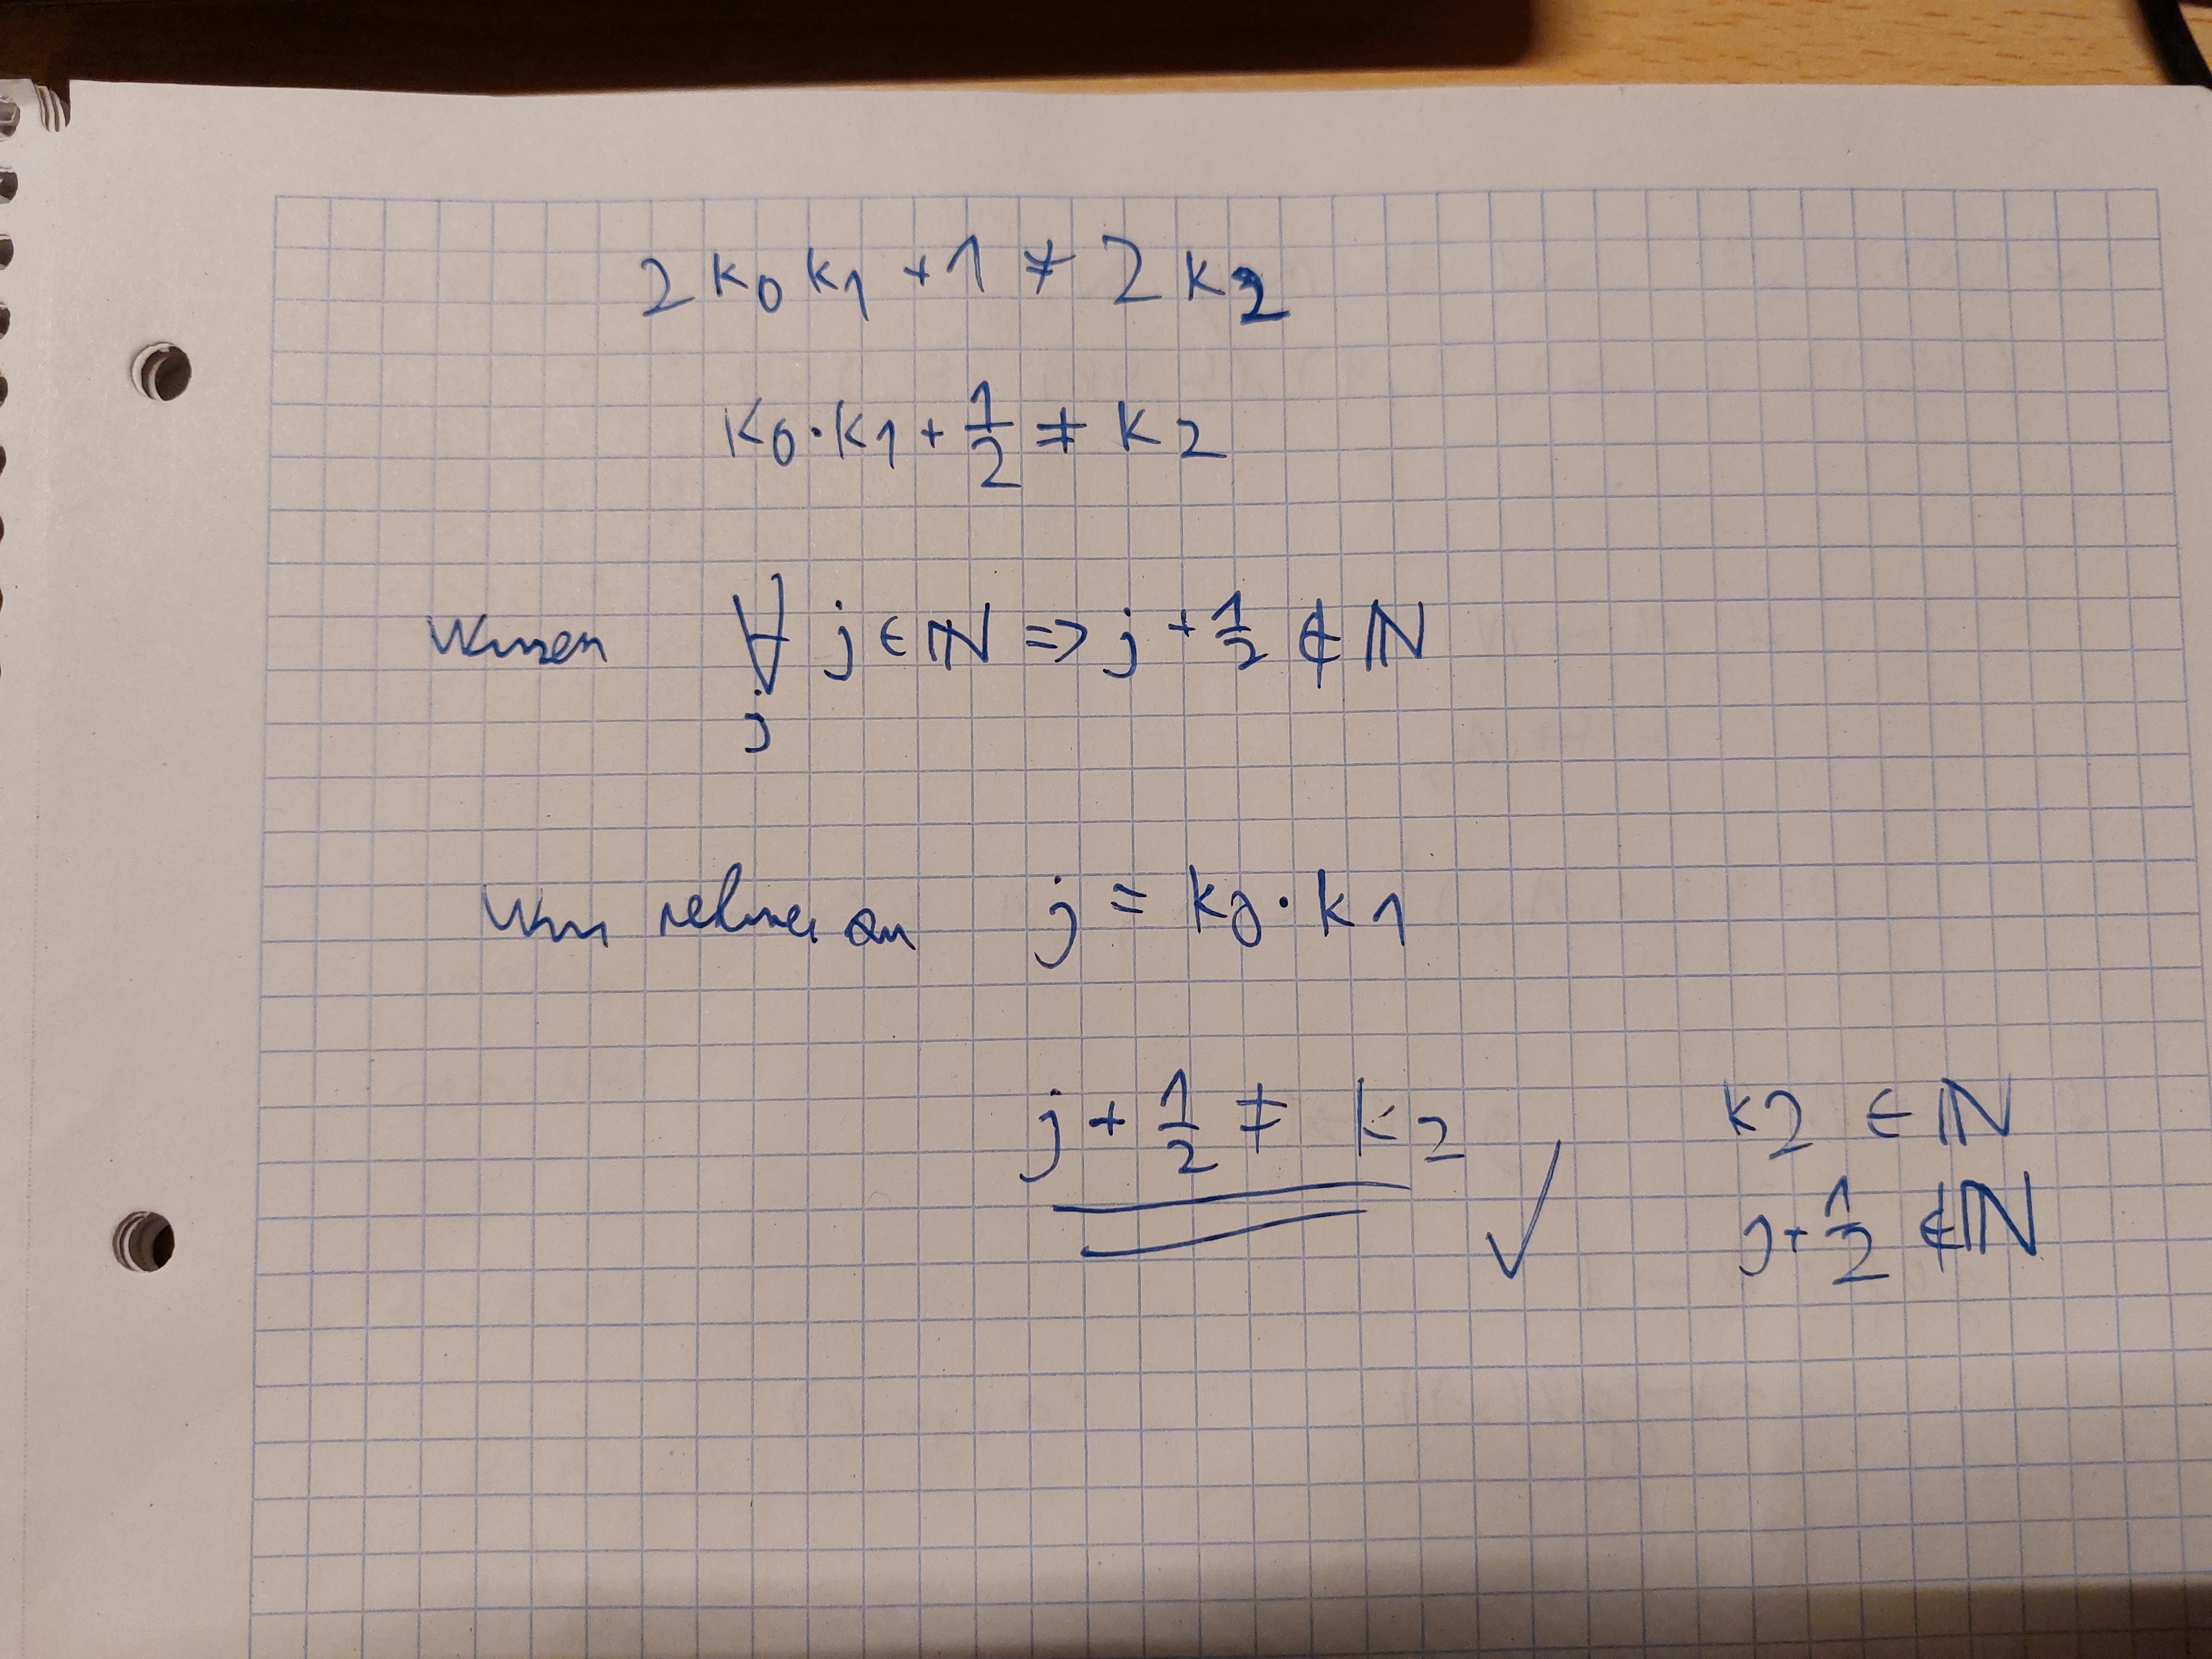 2 k0 k1 + 1 ≠ 2 k2
k0 · k1 + 1/2 ≠ k2
Wissen ∀ j ∈ ℕ ⇒ j + 1/2 ∉ ℕ
j
Wir nehmen an j = k0 · k1
j + 1/2 ≠ k2 ✓
k2 ∈ ℕ
j + 1/2 ∉ ℕ